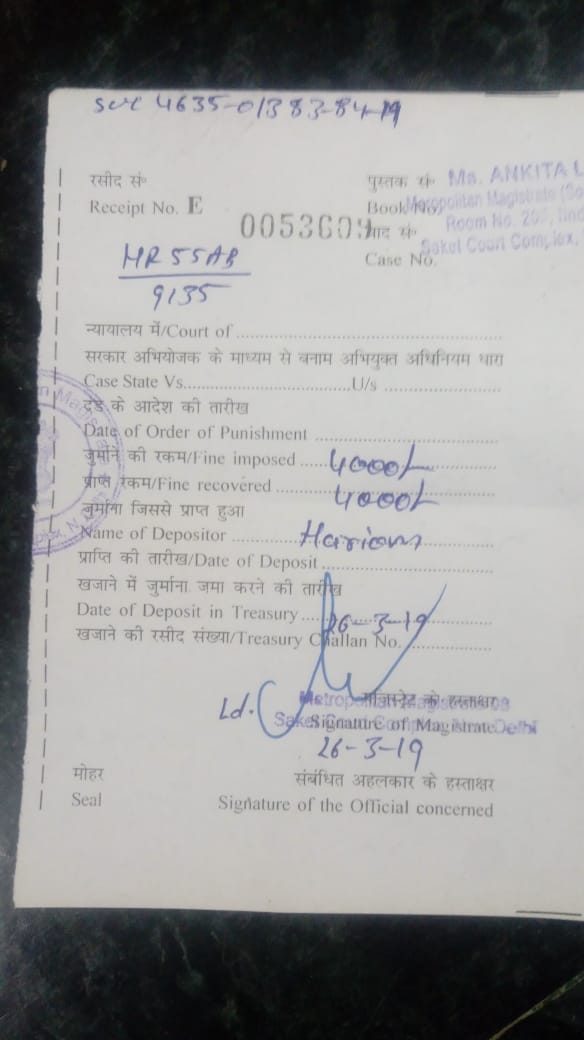 4635-01383-84-19
रसीद सं॰
Receipt No. E
0053609
पुस्तक सं॰
Book No.
वाद सं॰
Case No.
Ms. ANKITA L
Metropolitan Magistrate
Room No.
Saket Court Complex,
HR55AB
9135
न्यायालय में/Court of
सरकार अभियोजक के माध्यम से बनाम अभियुक्त अधिनियम धारा
Case State Vs. U/s
दंड के आदेश की तारीख
Date of Order of Punishment
जुर्माने की रकम/Fine imposed 4000/-
प्राप्त रकम/Fine recovered 4000/-
जुर्माना जिससे प्राप्त हुआ
Name of Depositor Hariom
प्राप्ति की तारीख/Date of Deposit
खजाने में जुर्माना जमा करने की तारीख
Date of Deposit in Treasury 26-3-19
खजाने की रसीद संख्या/Treasury Challan No.
Ld.
मजिस्ट्रेट के हस्ताक्षर
Metropolitan Magistrate
Signature of Magistrate
Saket Delhi
26-3-19
मोहर
Seal
संबंधित अहलकार के हस्ताक्षर
Signature of the Official concerned